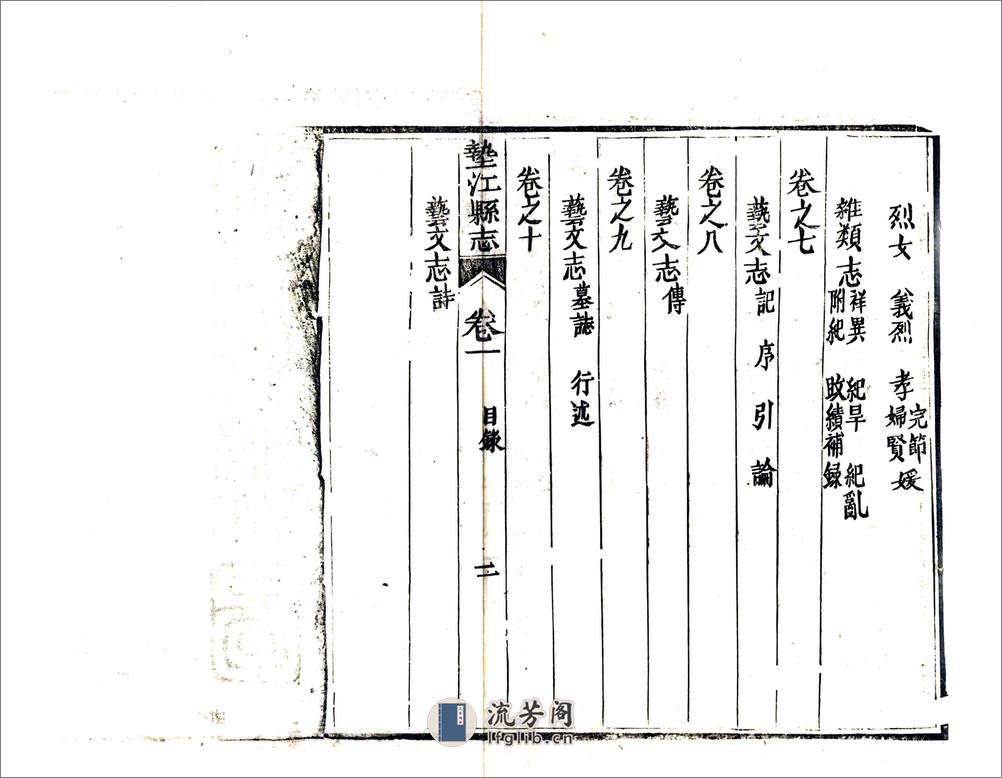 烈女 義烈 孝婦 完節 賢媛
雜類志 祥異 紀旱 紀亂
附紀 政績補録
卷之七
藝文志記 序 引 論
卷之八
藝文志傳
卷之九
藝文志墓誌 行述
卷之十
墊江縣志 卷一 目錄 二
藝文志詩
流芳阁
lfglib.cn